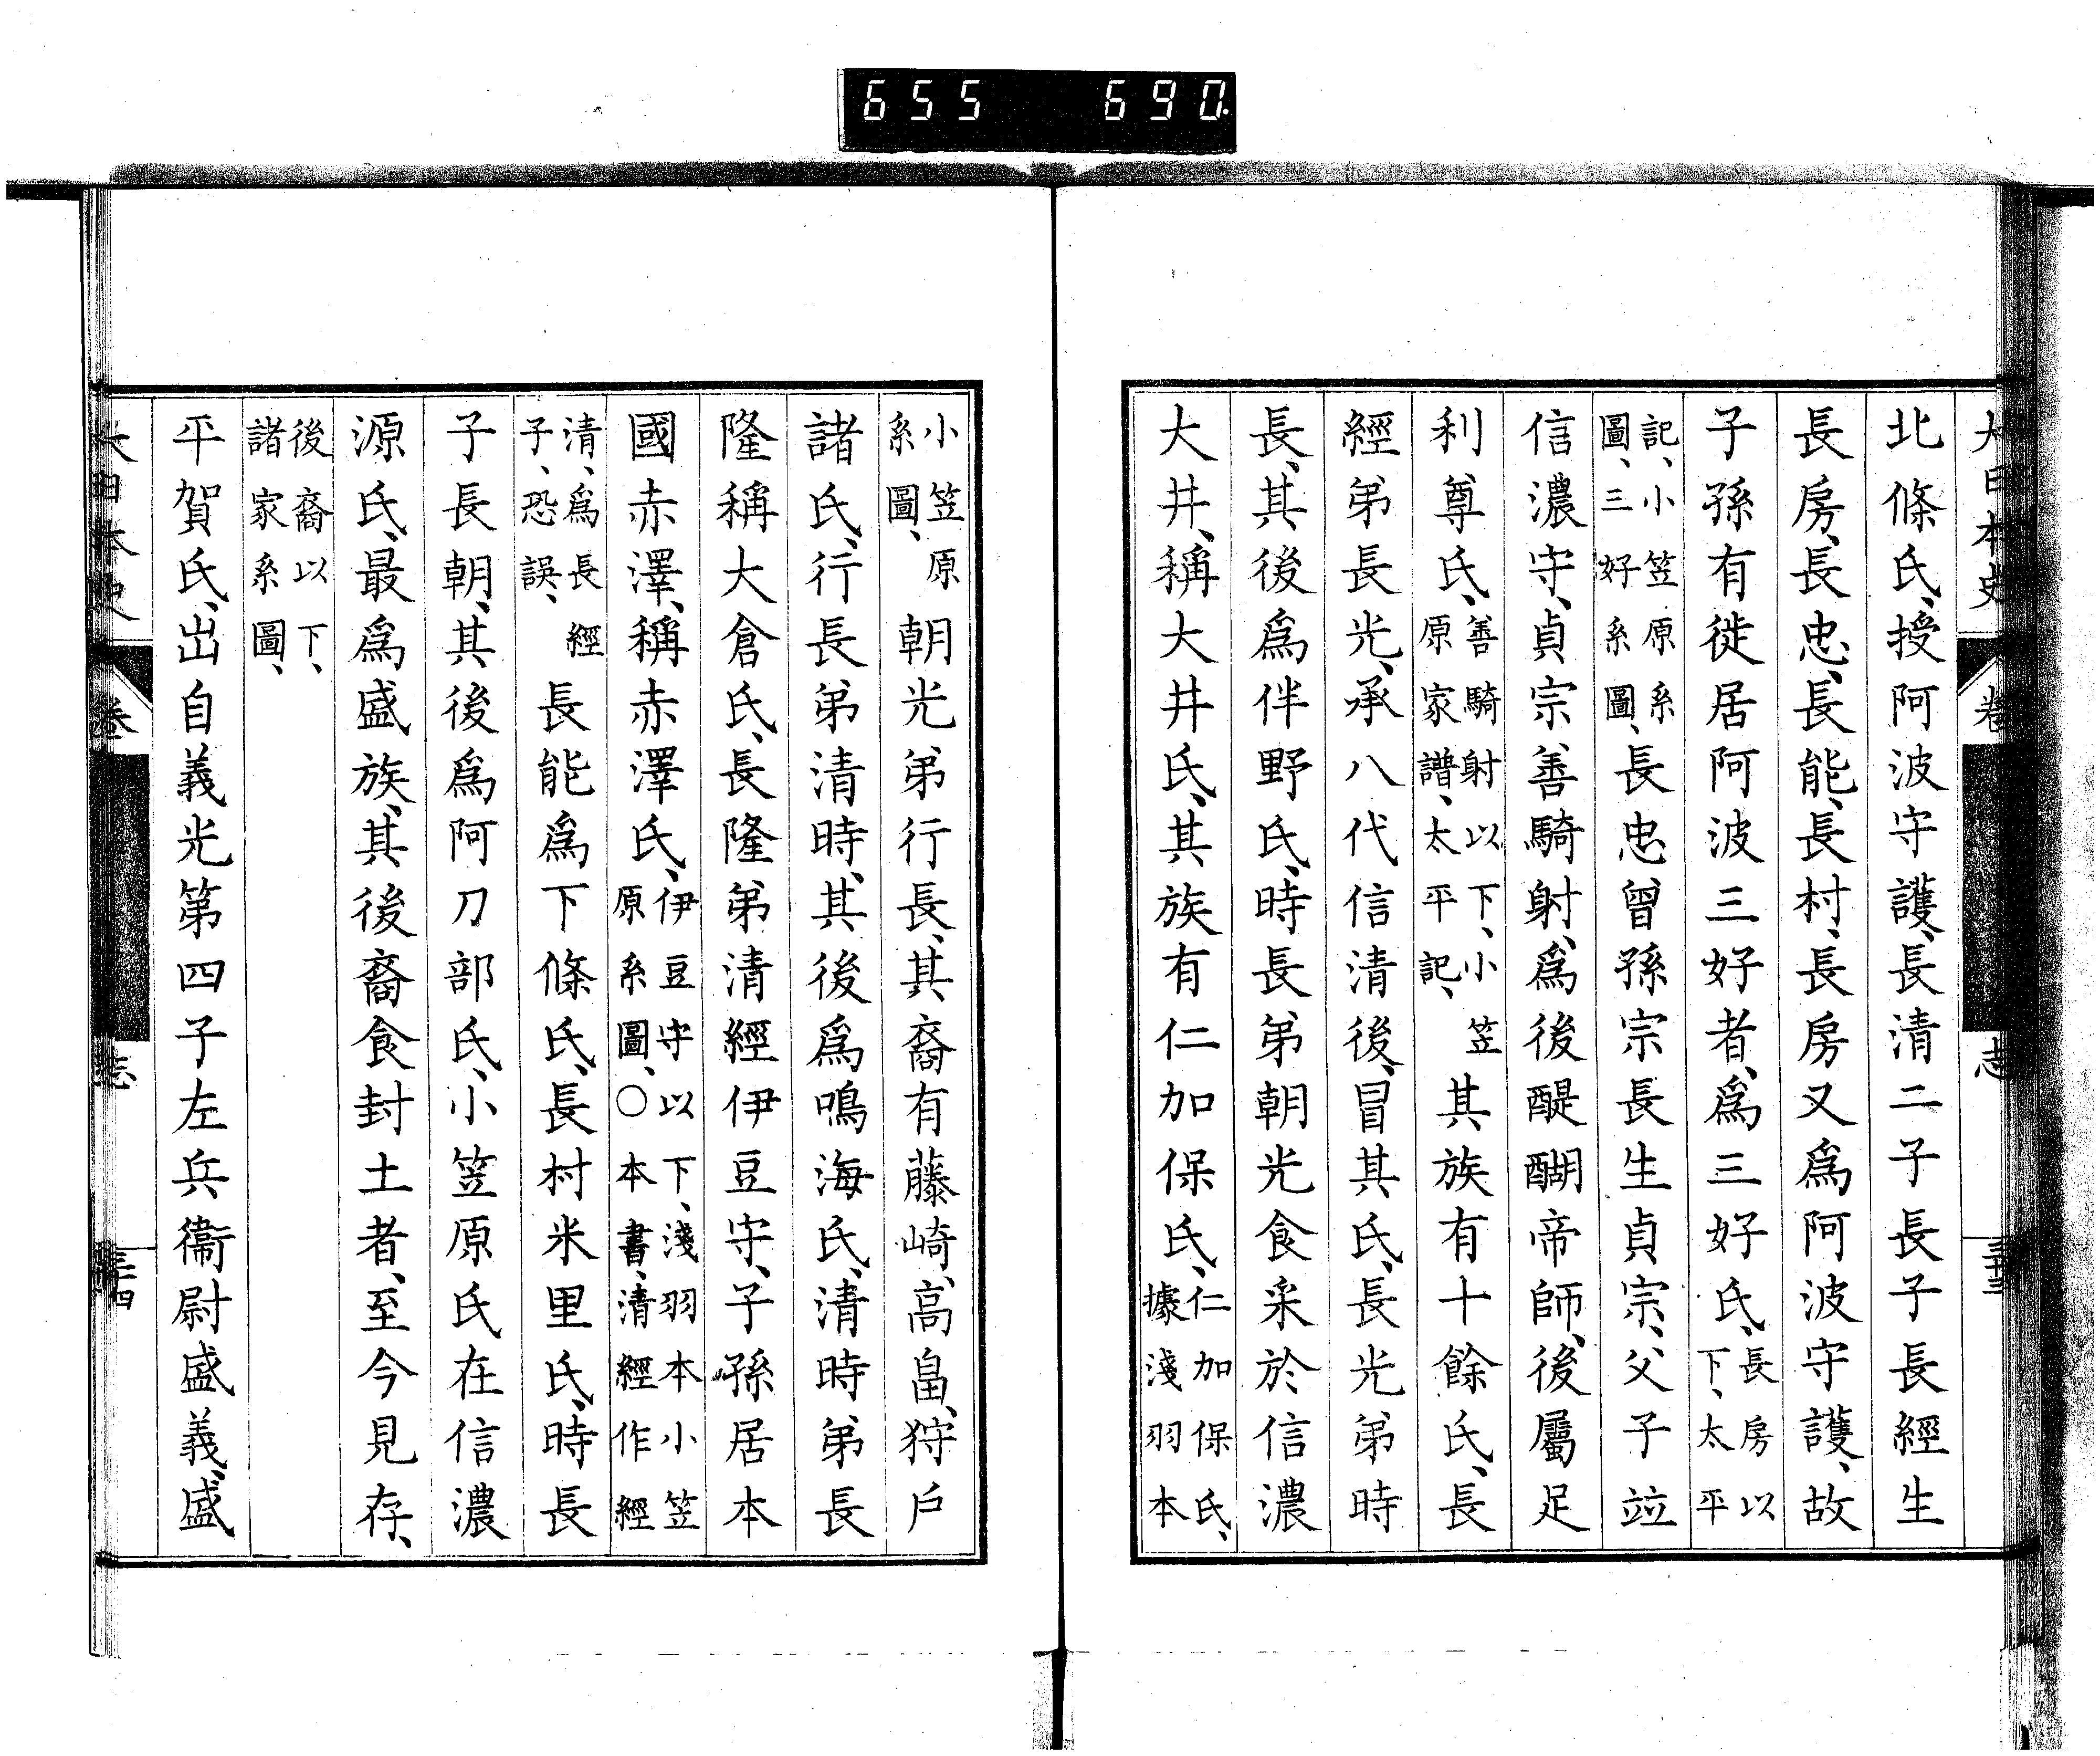 655 690.
大日本史 卷 志 三十三
北條氏、授阿波守護、長清二子長子長經生
長房、長忠、長能、長村、長房又爲阿波守護、故
子孫有徙居阿波三好者、爲三好氏、長房以下、太平
記、小笠原系圖、三好系圖、長忠曾孫宗長生貞宗、父子竝
信濃守、貞宗善騎射、爲後醍醐帝師、後屬足
利尊氏、善騎射以下、小笠原家譜、太平記、其族有十餘氏、長
經弟長光、承八代信清後、冒其氏、長光弟時
長、其後爲伴野氏、時長弟朝光食采於信濃
大井、稱大井氏、其族有仁加保氏、仁加保氏、據淺羽本
小笠原系圖、朝光弟行長、其裔有藤崎、高畠、狩戶
諸氏、行長弟清時、其後爲鳴海氏、清時弟長
隆稱大倉氏、長隆弟清經伊豆守、子孫居本
國赤澤、稱赤澤氏、伊豆守以下、淺羽本小笠原系圖、○本書、清經作經
清、爲長經子、恐誤、長能爲下條氏、長村米里氏、時長
子長朝、其後爲阿刀部氏、小笠原氏在信濃
源氏、最爲盛族、其後裔食封土者、至今見存、
後裔以下、諸家系圖、
平賀氏、出自義光第四子左兵衞尉盛義、盛
大日本史 卷 志 三十四